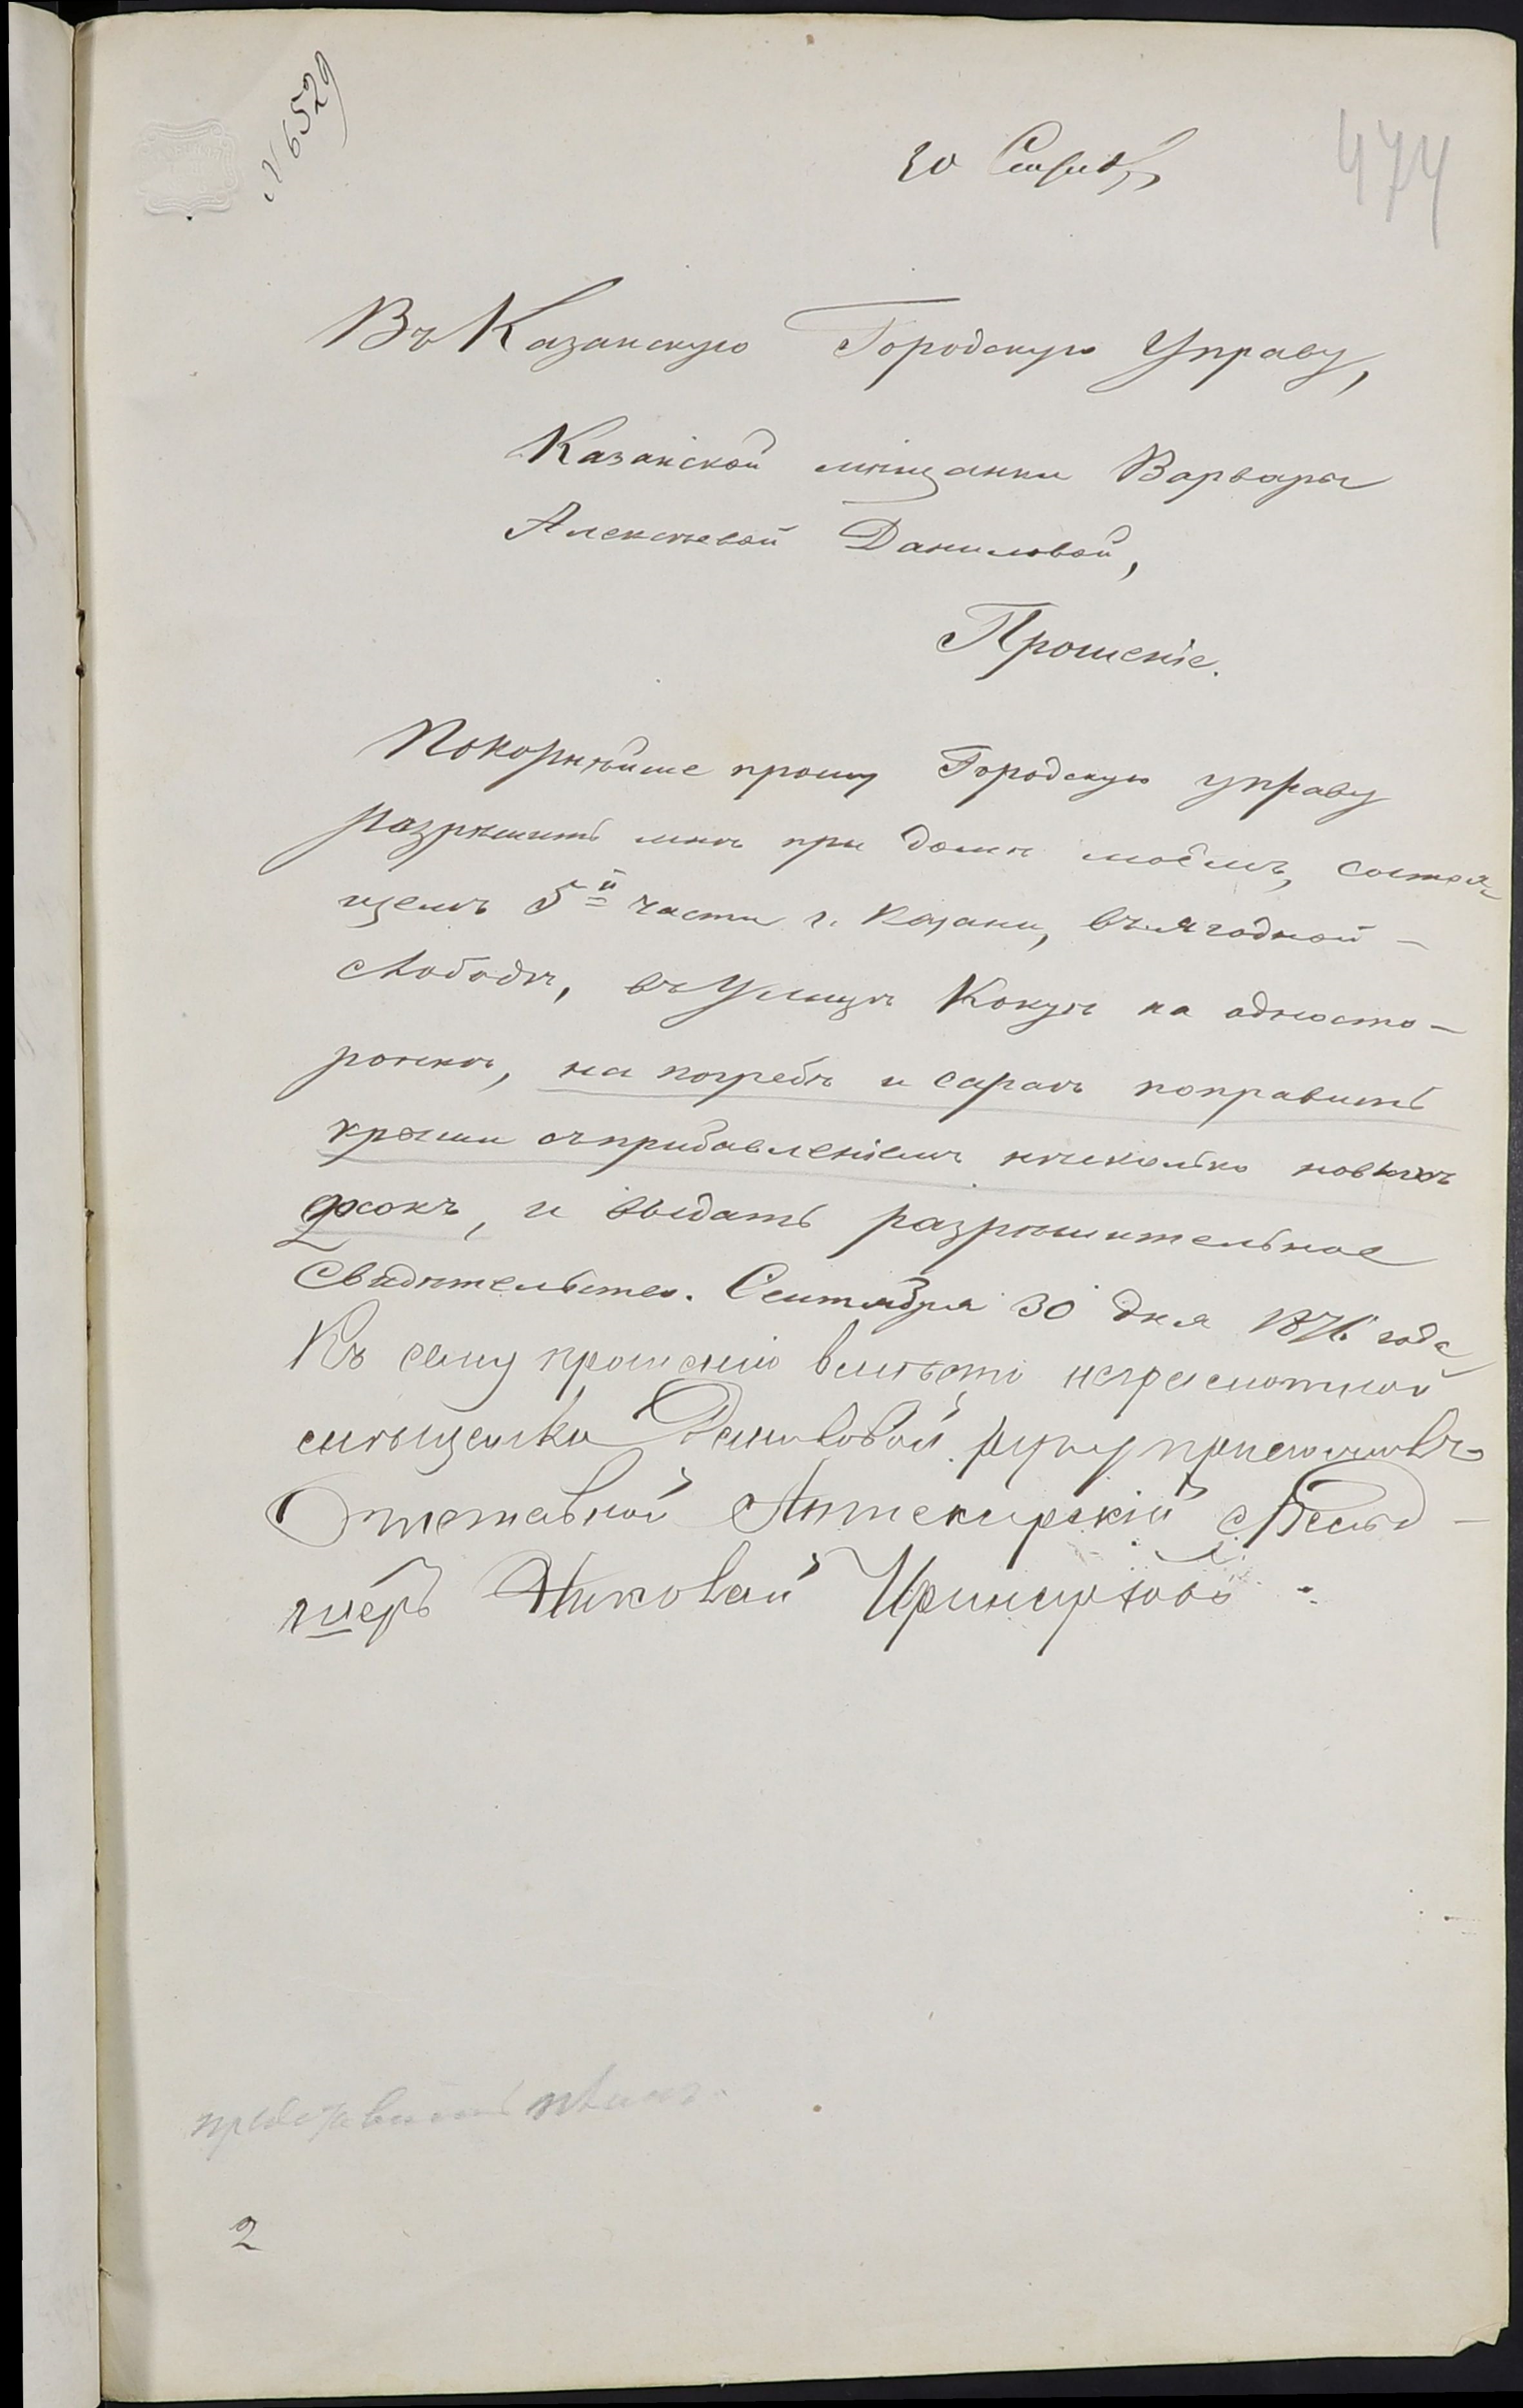 № 6529
30 Сентяб
474
Въ Казанскую Городскую Управу,
Казанской мѣщанки Варвары
Алексѣевой Даниловой,
Прошеніе.
Покорнѣйше прошу Городскую управу
разрѣшить мнѣ при домѣ моёмъ, состоя-
щемъ 5й части г. Казани, въ ягодной-
слободѣ, въ Улицѣ Кокуѣ на односто-
ронкѣ, на погребѣ и сараѣ поправить
крыши съ прибавленіемъ нѣсколько новыхъ
досокъ, и выдать разрѣшительное
Свидѣтельство. Сентября 30 дня 1876 года
Къ сему прошенію вмѣсто неграмотной
мѣщанки Даниловой руку приложилъ
Отставной Аптекарскій Фельд-
шеръ Николай
представить планъ.
2